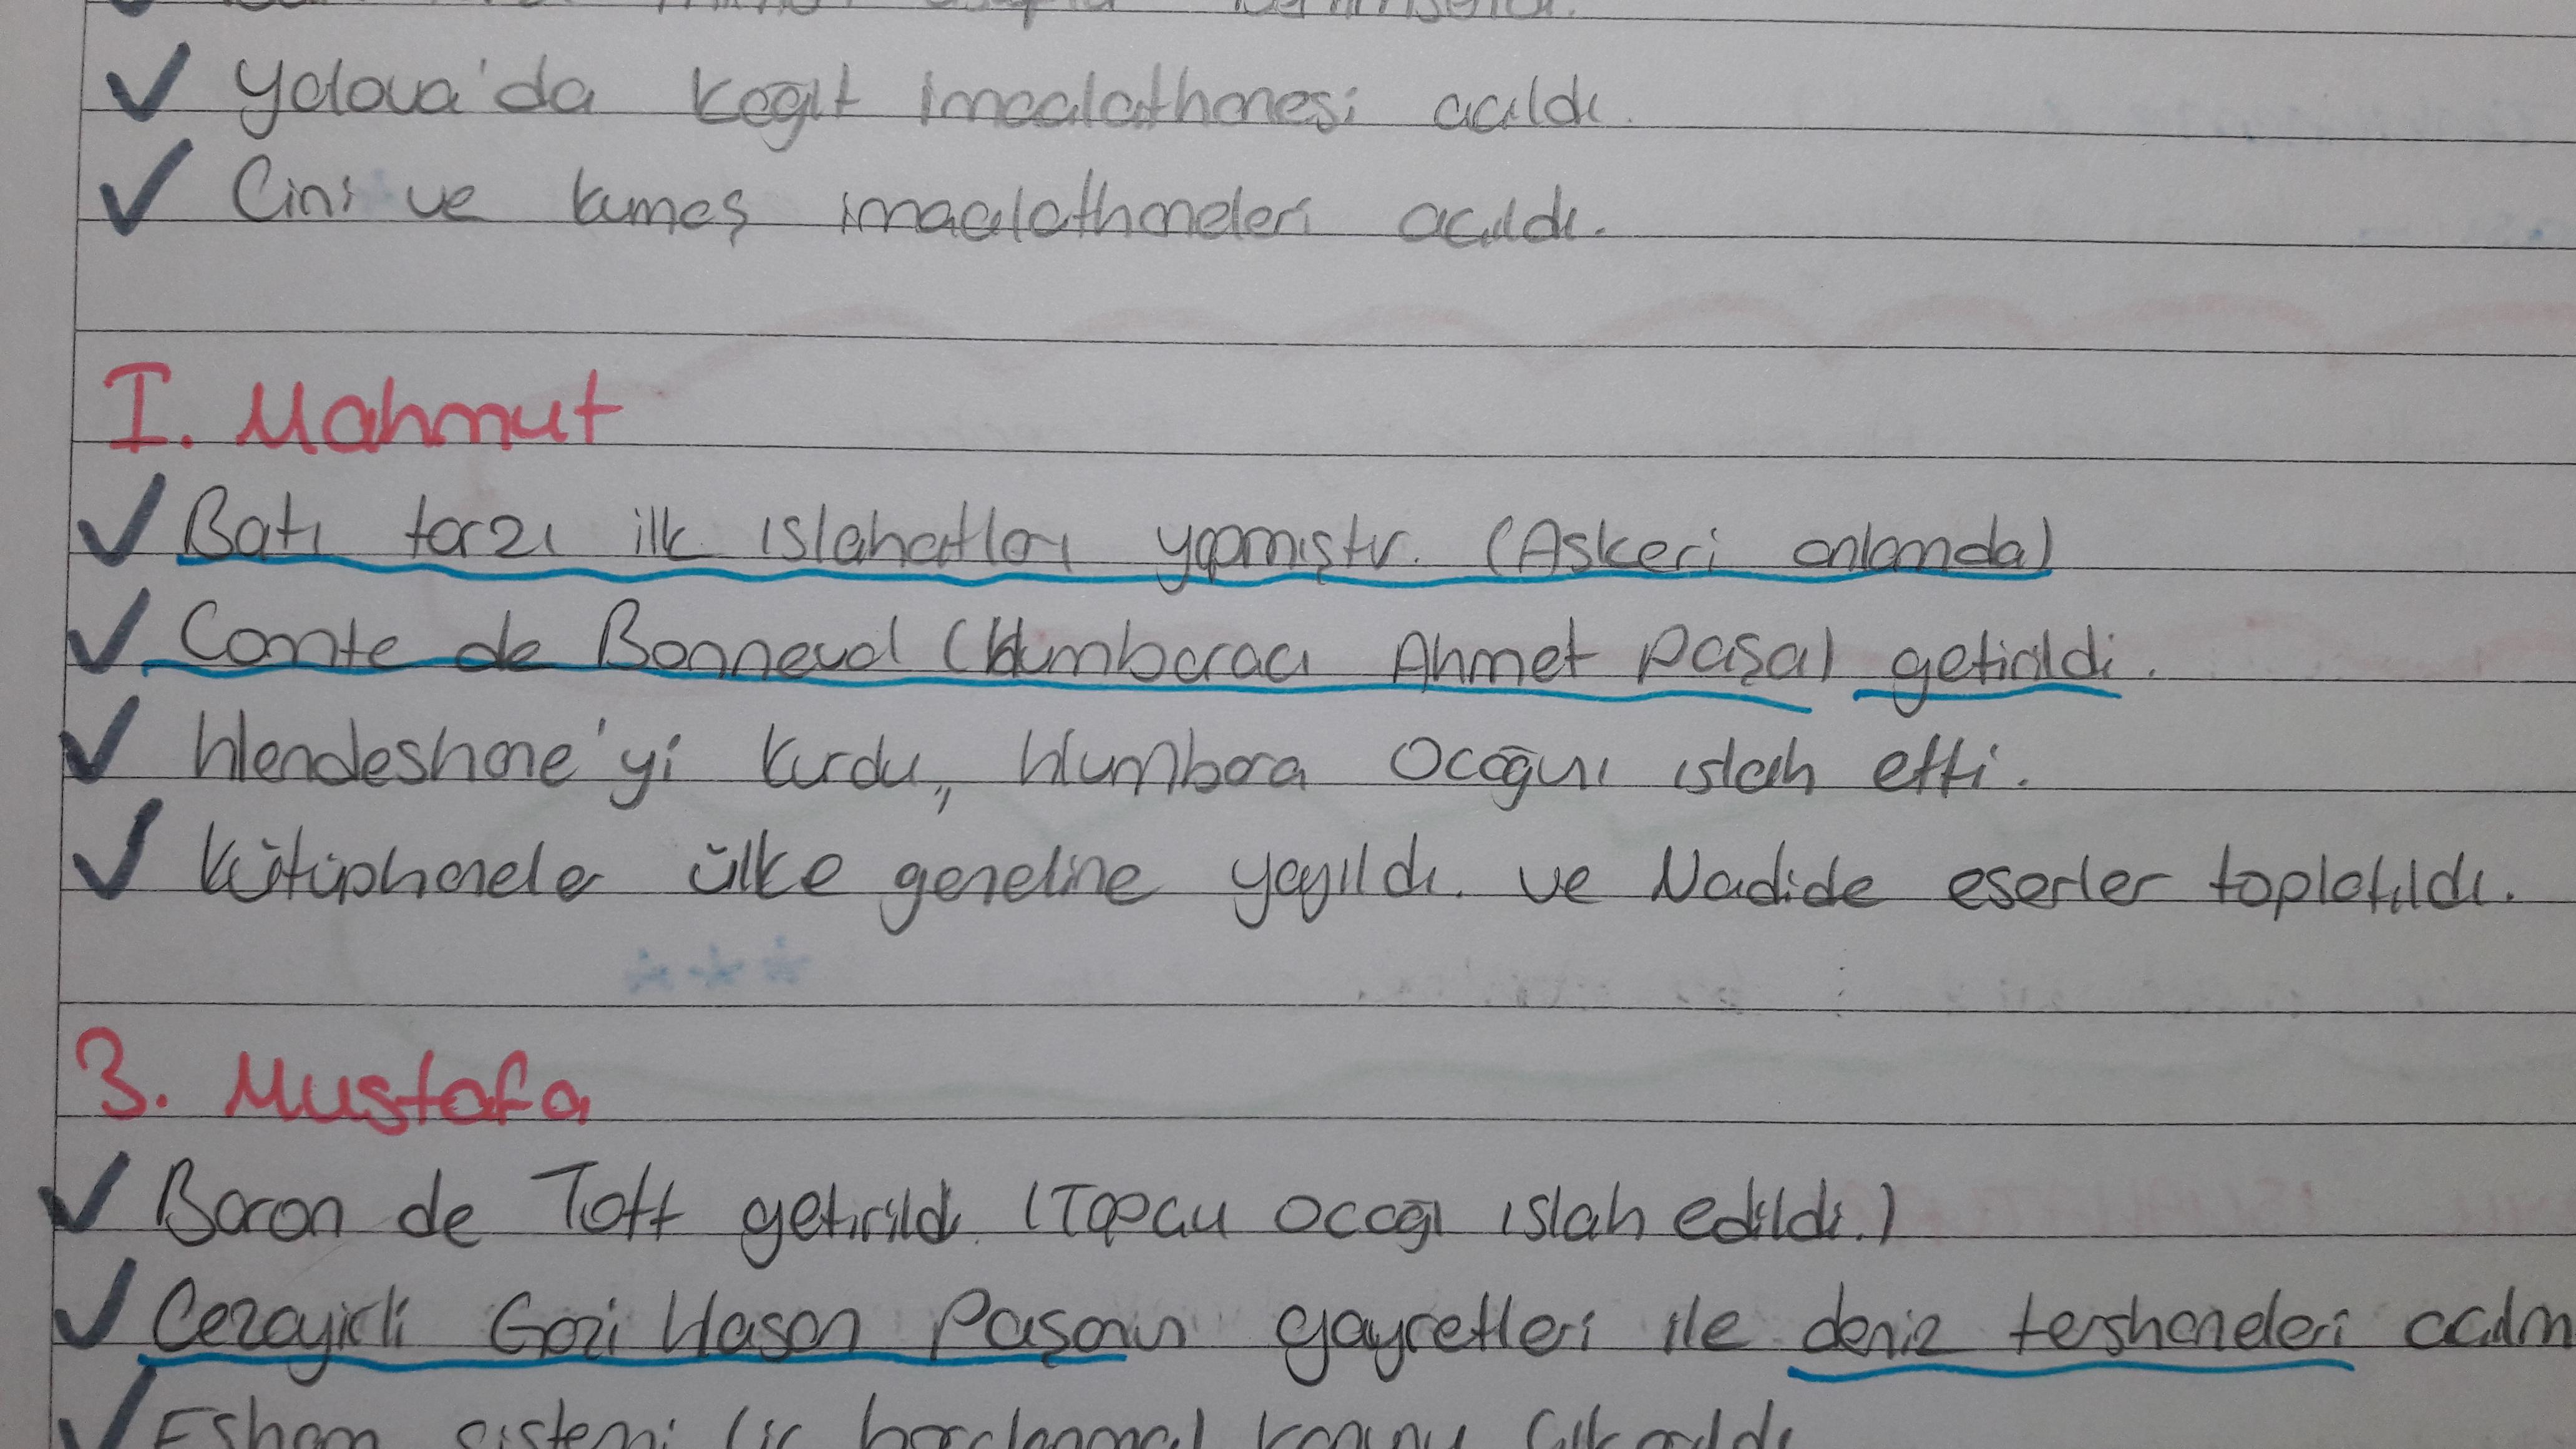 ✓ Yalova'da kağıt imaalathanesi açıldı.
✓ Çini ve kumaş imaalathaneleri açıldı.
I. Mahmut
✓ Batı tarzı ilk ıslahatları yapmıştır. (Askeri anlamda)
✓ Comte de Bonneval (Humbaracı Ahmet Paşa) getirildi.
✓ Hendeshane'yi kurdu, Humbara Ocağını ıslah etti.
✓ Kütüphaneler ülke geneline yayıldı. ve Nadide eserler toplatıldı.
3. Mustafa
✓ Baron de Tott getirildi. (Topçu Ocağı ıslah edildi.)
✓ Cezayirli Gazi Hasan Paşanın gayretleri ile deniz tershaneleri açılm
✓ Esham sistemi (iç borçlanma) kanunu çıkarıldı